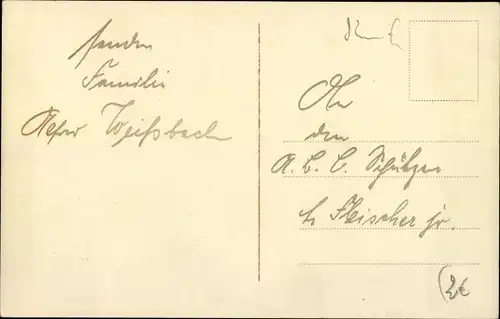 senden
Familie
Weißbach
An
den
A. B. C. Schützen
H. Fleischer jr.
2€